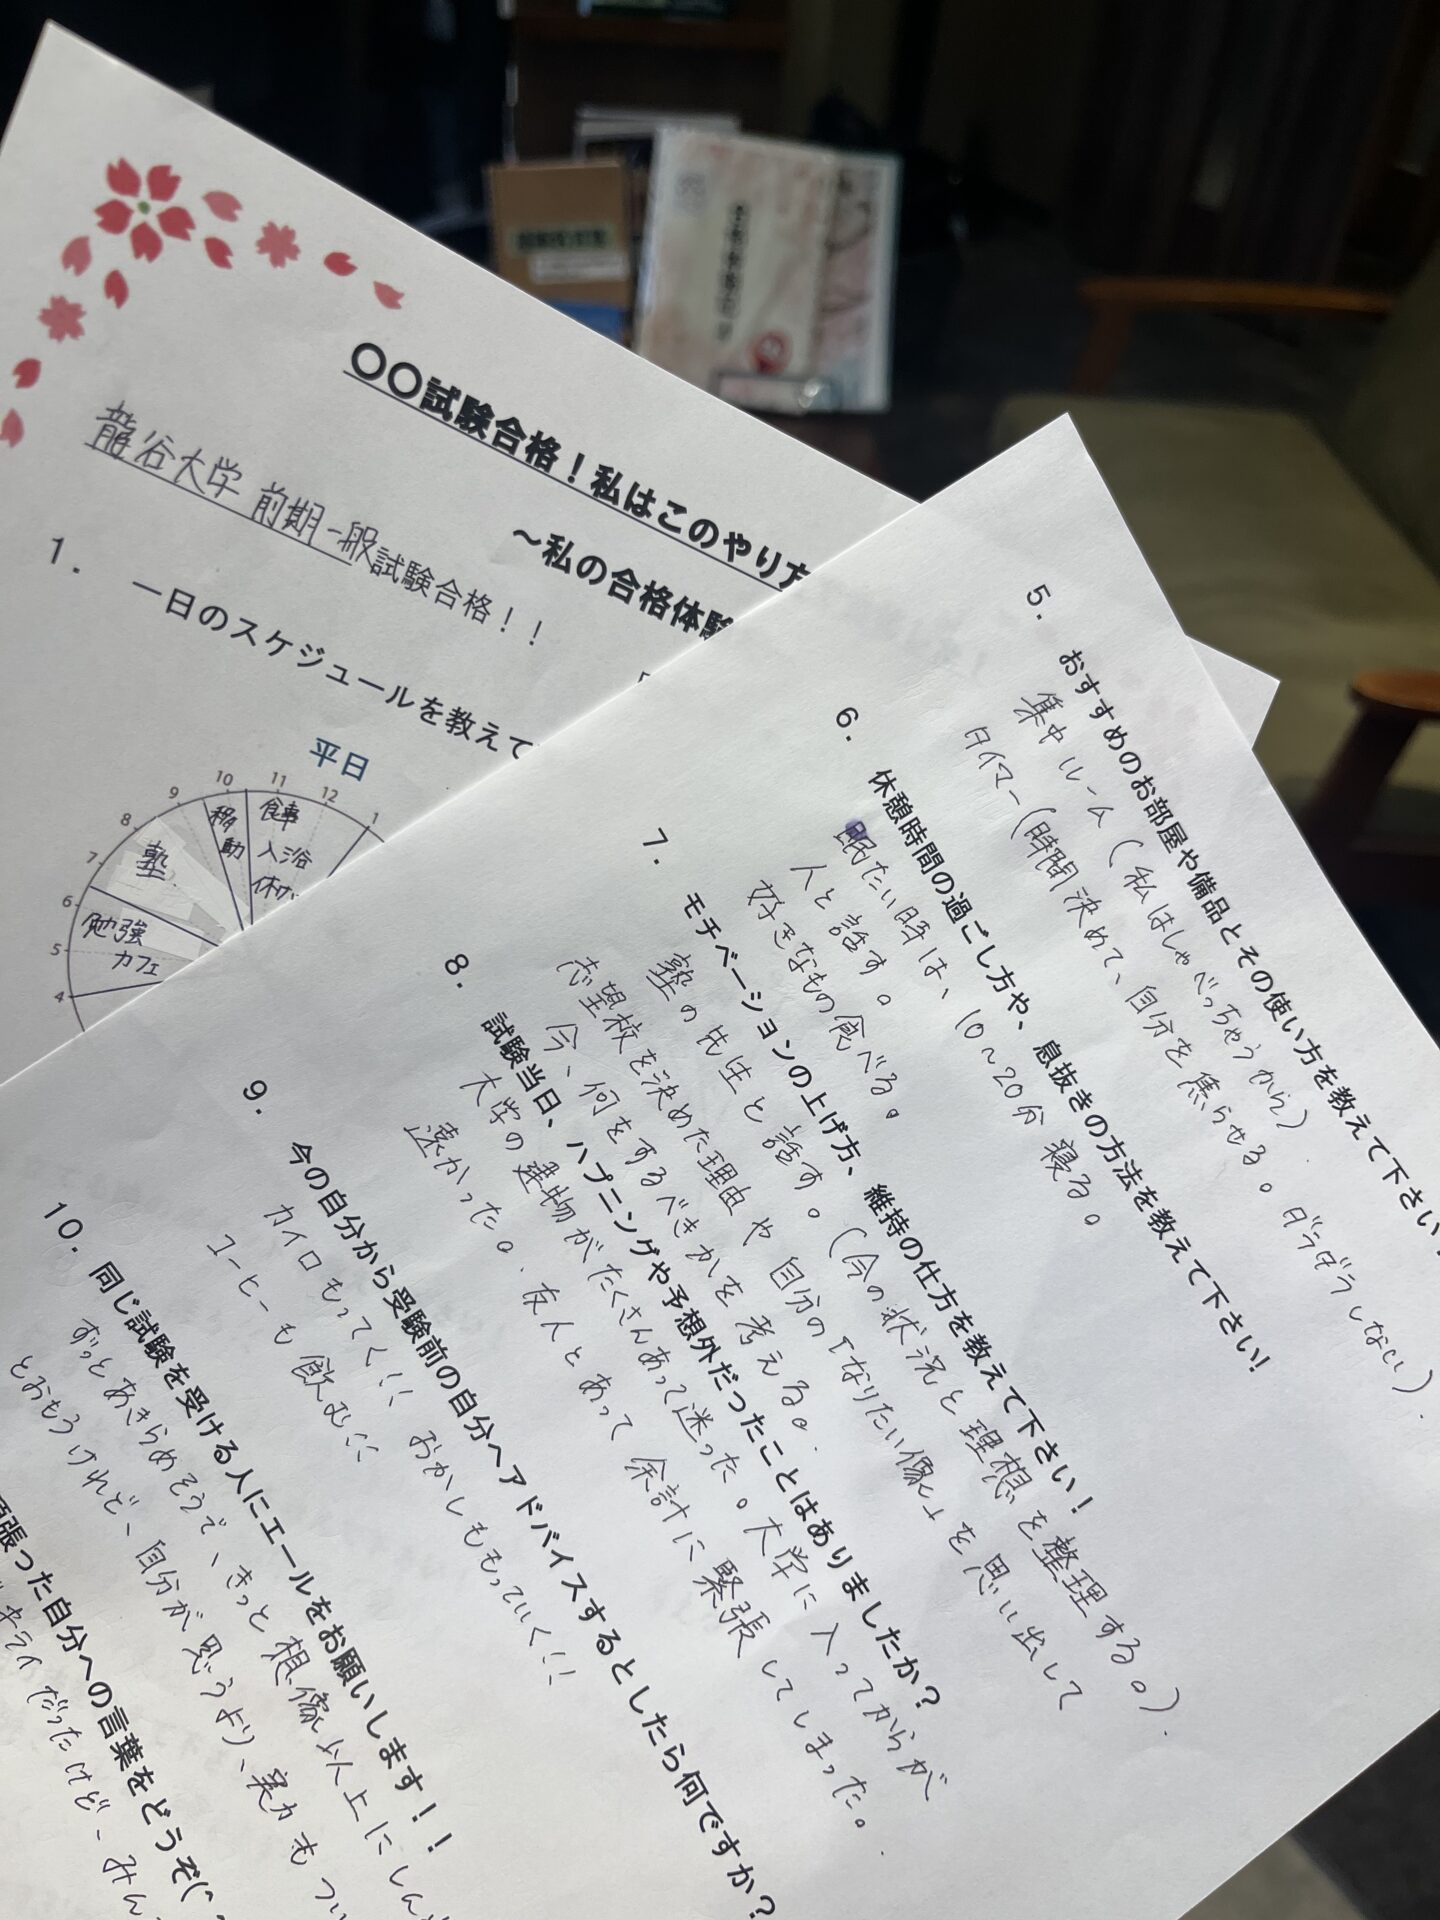 〇〇試験合格！私はこのやり方
～私の合格体験
龍谷大学 前期一般試験合格！！
1. 一日のスケジュールを教えて
平日
4
5
6
7
8
9
10
11
12
1
移動
食事
入浴
塾
勉強
カフェ
5. おすすめのお部屋や備品とその使い方を教えて下さい！
集中ルーム（私はしゃべっちゃうから）
タイマー（時間決めて、自分を焦らせる。ダラダラしない）
6. 休憩時間の過ごし方や、息抜きの方法を教えて下さい！
眠たい時は、10～20分 寝る。
人と話す。
好きなもの食べる。
7. モチベーションの上げ方、維持の仕方を教えて下さい！
塾の先生と話す。（今の状況と理想を整理する。）
志望校を決めた理由や自分の「なりたい像」を思い出して
今、何をするべきかを考える。
8. 試験当日、ハプニングや予想外だったことはありましたか？
大学の建物がたくさんあって迷った。大学に入ってからが
遠かった。友人とあって余計に緊張してしまった。
9. 今の自分から受験前の自分へアドバイスするとしたら何ですか？
カイロもってく!! おかしももっていく!!
コーヒーも飲む!!
10. 同じ試験を受ける人にエールをお願いします！！
ずっとあきらめそうで、きっと想像以上にしんど
とおもうけれど、自分が思うより、実力もつい
張った自分への言葉をどうぞ(^
キライだったけど、みん